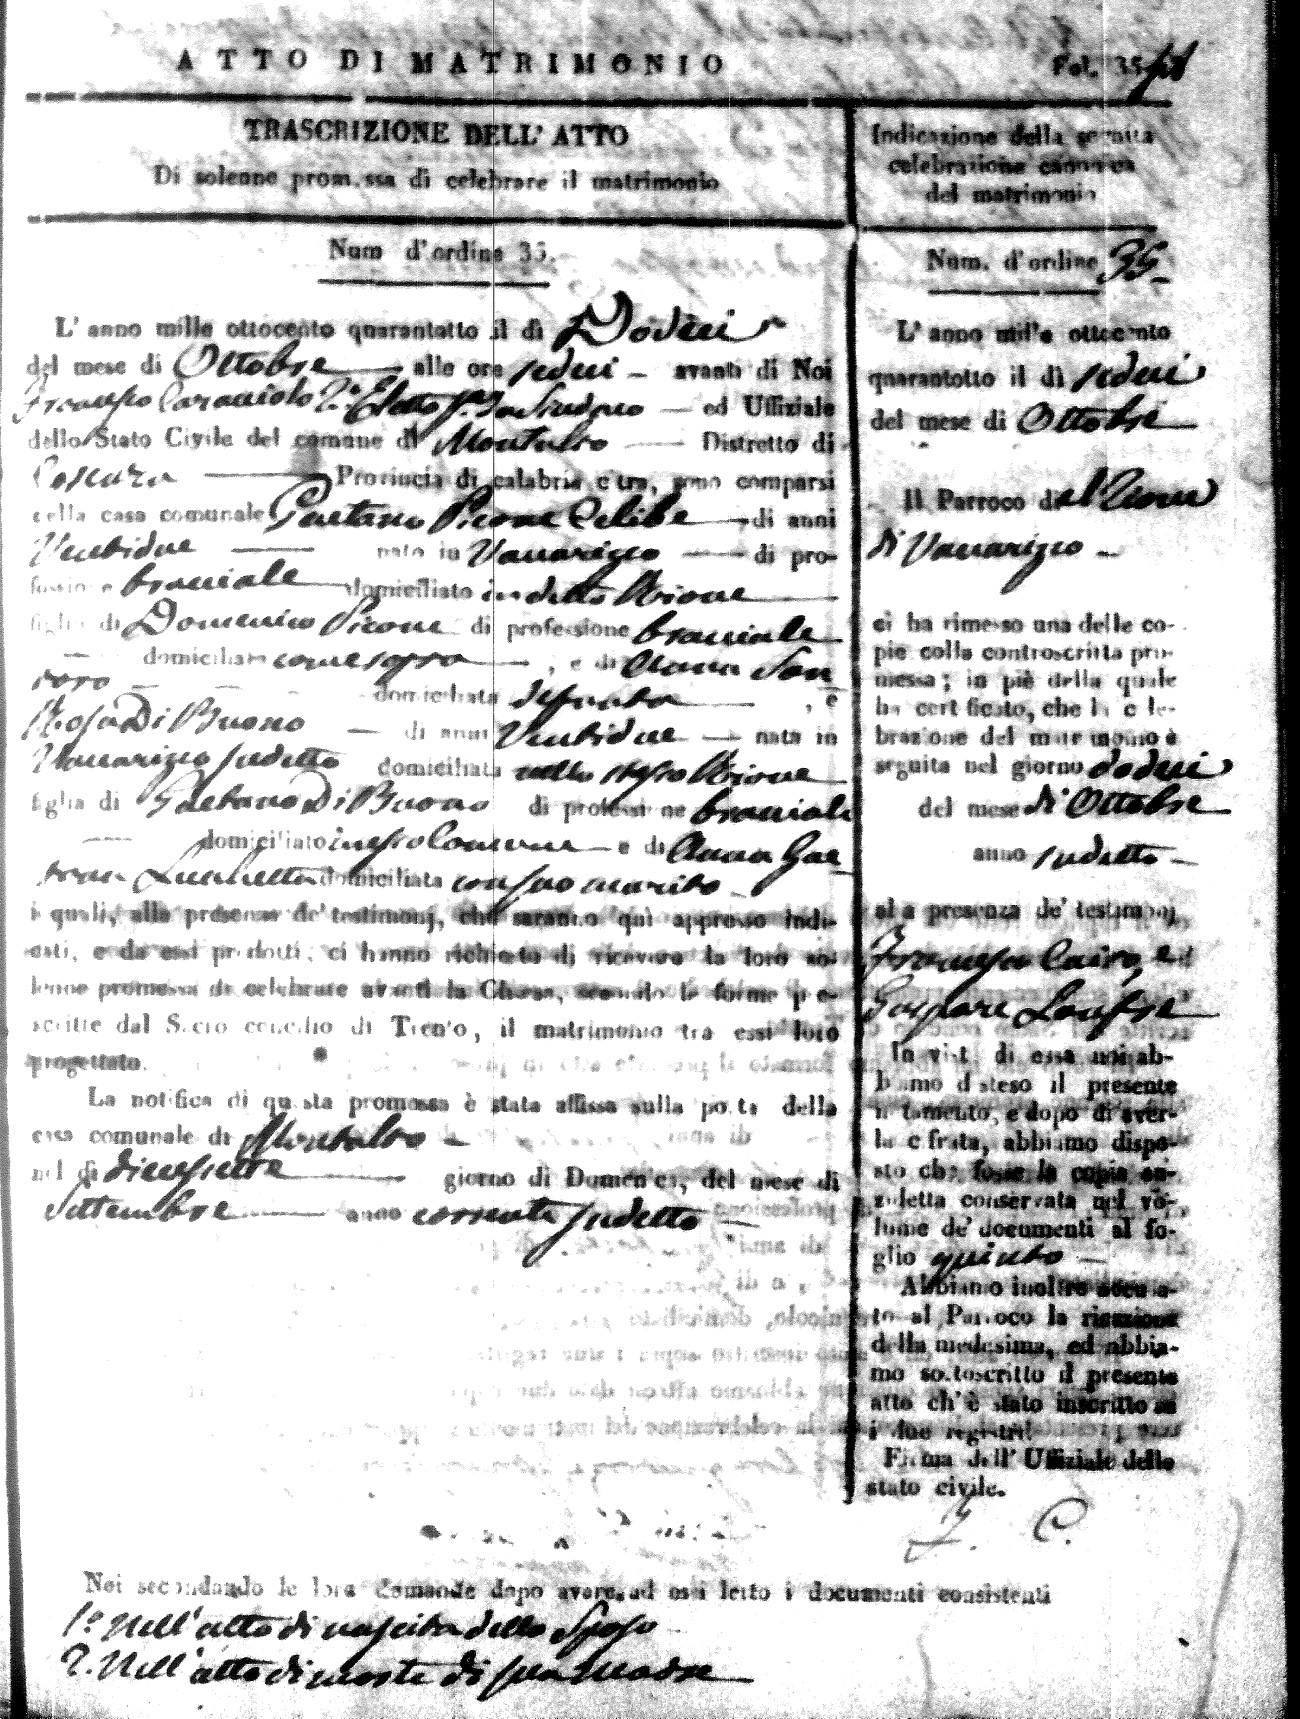 ATTO DI MATRIMONIO
Fol. 35
TRASCRIZIONE DELL' ATTO
Di solenne promessa di celebrare il matrimonio
Num d'ordine 35.
L' anno mille ottocento quarantotto il dì Dodeci
del mese di Ottobre alle ore sedeci avanti di Noi
Francesco Caracciolo 2.o Eletto Sindaco ed Uffiziale
dello Stato Civile del comune di Montalto Distretto di
Cosenza Provincia di calabria citra, sono comparsi
nella casa comunale Gaetano Picone Celibe di anni
Ventidue nato in Vaccarizzo di pro-
fessione bracciale domiciliato in detto Rione
figlio di Domenico Picone di professione bracciale
domiciliato come sopra, e di Anna San
domiciliata defunta, e
Rosa Di Buono di anni Ventidue nata in
Vaccarizzo sudetto domiciliata nello stesso Rione
figlia di Gaetano Di Buono di professione bracciale
domiciliato in esso Comune e di Anna Gae
tana Luchetta domiciliata con suo marito
i quali, alla presenza de' testimonj, che saranno quì appresso indi-
cati, e da essi prodotti, ci hanno richiesto di ricevere la loro so-
lenne promessa di celebrare avanti la Chiesa, secondo le forme pre-
scritte dal Sacro concilio di Trento, il matrimonio tra essi loro
progettato.
La notifica di questa promessa è stata affissa sulla porta della
casa comunale di Montalto
nel dì diecessette giorno di Domenica, del mese di
Settembre anno corrente sudetto
Indicazione della seguita
celebrazione canonica
del matrimonio
Num. d'ordine 35
L' anno mille ottocento
quarantotto il dì sedeci
del mese di Ottobre
Il Parroco del Rione
di Vaccarizzo
ci ha rimesso una delle co-
pie colla controscritta pro-
messa; in piè della quale
ha certificato, che la cele-
brazione del matrimonio è
seguita nel giorno dodeci
del mese di Ottobre
anno sudetto
alla presenza de' testimonj
Francesco Cairo, e
Gaspare
In vista di essa noi ab-
biamo disteso il presente
notamento, e dopo di aver-
la cifrata, abbiamo dispo-
sto che fosse la copia an-
zidetta conservata nel vo-
lume de' documenti al fo-
glio quinto
Abbiamo inoltre accusa-
to al Parroco la ricezione
della medesima, ed abbia-
mo sottoscritto il presente
atto ch'è stato inscritto su
i due registri.
Firma dell' Uffiziale dello
stato civile.
F. C.
Noi secondando le loro domande dopo avere ad essi letto i documenti consistenti
1.o Nell'atto di nascita dello Sposo
2. Nell'atto di morte di sua Madre